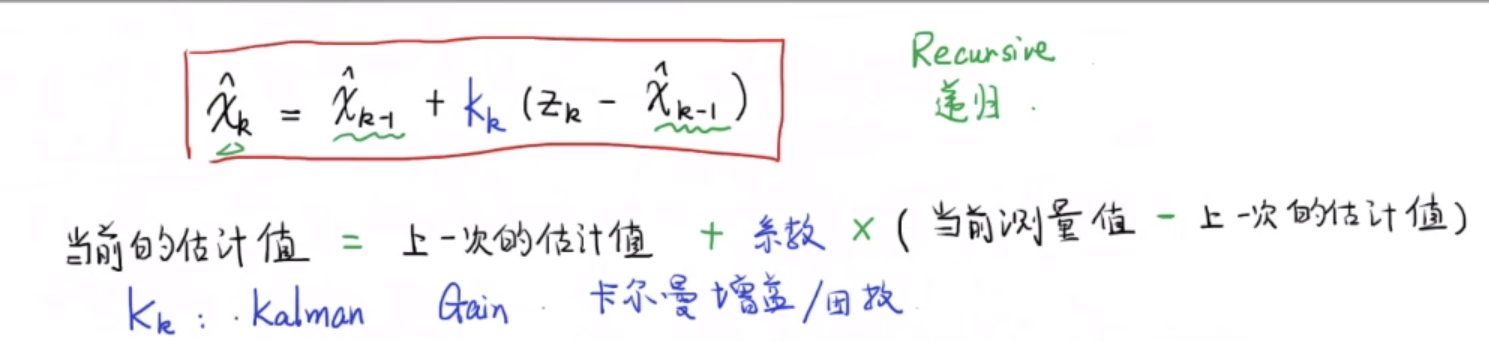 x̂ₖ = x̂ₖ₋₁ + kₖ (zₖ - x̂ₖ₋₁)
Recursive
递归.
当前的估计值 = 上一次的估计值 + 系数 × ( 当前测量值 - 上一次的估计值)
Kₖ : Kalman Gain 卡尔曼增益/因数